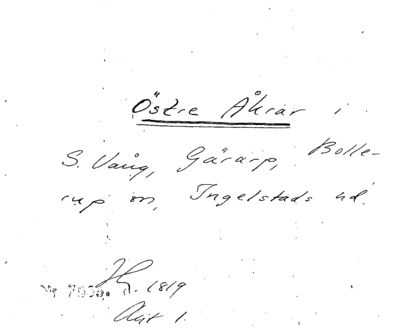 Östre Åkrar i
S. Vång, Gärarp, Bolle-
rup sn, Ingelstads hd.
1819
Akt 1.